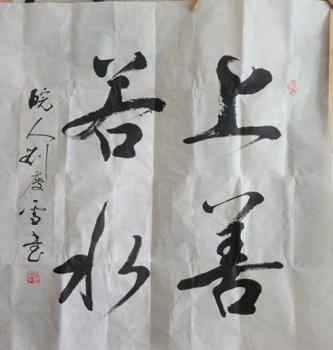 上善
若水
皖人刘庆雪书